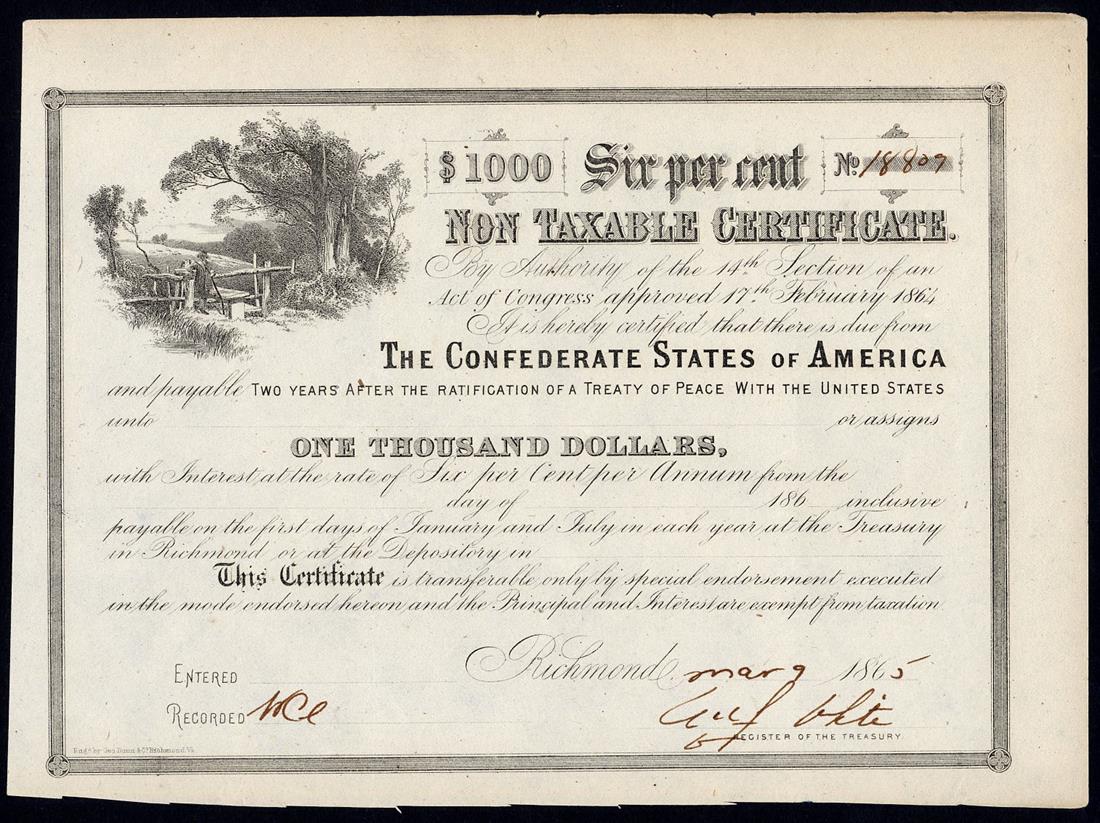 $1000 Six per cent No. 18809
NON TAXABLE CERTIFICATE.
By Authority of the 14th Section of an
Act of Congress approved 17th February 1864
It is hereby certified that there is due from
THE CONFEDERATE STATES OF AMERICA
and payable TWO YEARS AFTER THE RATIFICATION OF A TREATY OF PEACE WITH THE UNITED STATES
unto or assigns
ONE THOUSAND DOLLARS,
with Interest at the rate of Six per Cent per Annum from the
day of 186 inclusive
payable on the first days of January and July in each year at the Treasury
in Richmond or at the Depository in
This Certificate is transferable only by special endorsement executed
in the mode endorsed hereon and the Principal and Interest are exempt from taxation
Richmond, mar 9 1865
ENTERED
RECORDED
REGISTER OF THE TREASURY
Engd. by Geo. Dunn & Co. Richmond, Va.